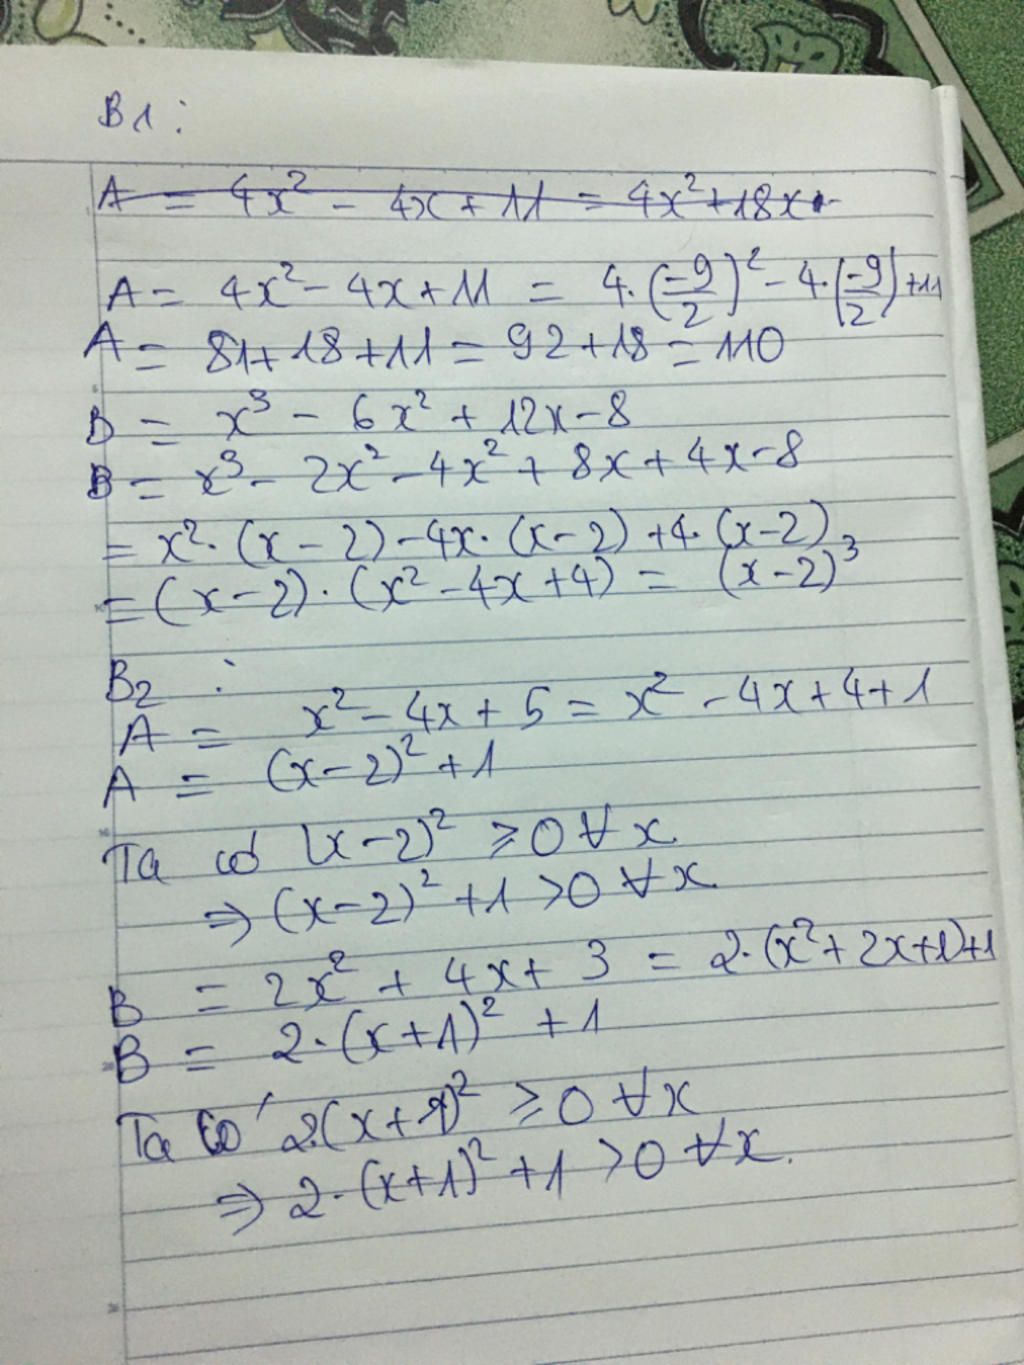 B1:
A = 4x² - 4x + 11 = 4x² + 18x +
A = 4x² - 4x + 11 = 4.(-9/2)² - 4.(-9/2) + 11
A = 81 + 18 + 11 = 92 + 18 = 110
B = x³ - 6x² + 12x - 8
B = x³ - 2x² - 4x² + 8x + 4x - 8
= x².(x - 2) - 4x.(x - 2) + 4.(x - 2)
= (x - 2).(x² - 4x + 4) = (x - 2)³
B2 :
A = x² - 4x + 5 = x² - 4x + 4 + 1
A = (x - 2)² + 1
Ta có (x - 2)² ≥ 0 ∀ x
⇒ (x - 2)² + 1 > 0 ∀ x.
B = 2x² + 4x + 3 = 2.(x² + 2x + 1) + 1
B = 2.(x + 1)² + 1
Ta có 2.(x + 1)² ≥ 0 ∀ x
⇒ 2.(x + 1)² + 1 > 0 ∀ x.